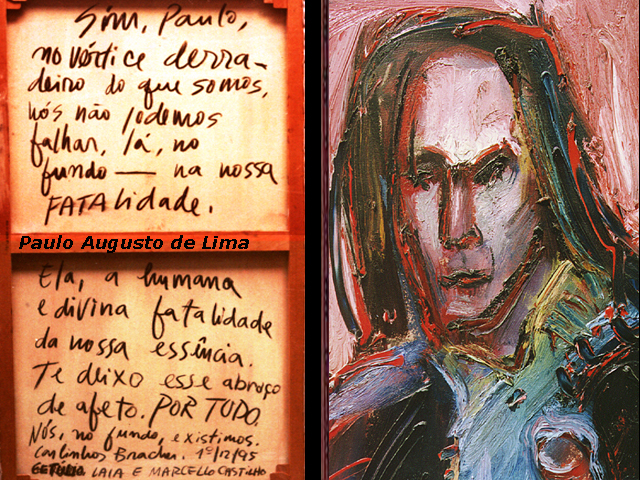 Sim, Paulo,
no vórtice derra-
deiro do que somos,
nós não podemos
falhar, lá, no
fundo — na nossa
FATAlidade.
Paulo Augusto de Lima
Ela, a humana
e divina fatalidade
da nossa essência.
Te deixo esse abraço
de afeto. POR TUDO.
Nós, no fundo, existimos.
Carlinhos Bracher. 1º/12/95
LAIA E MARCELLO CASTILHO